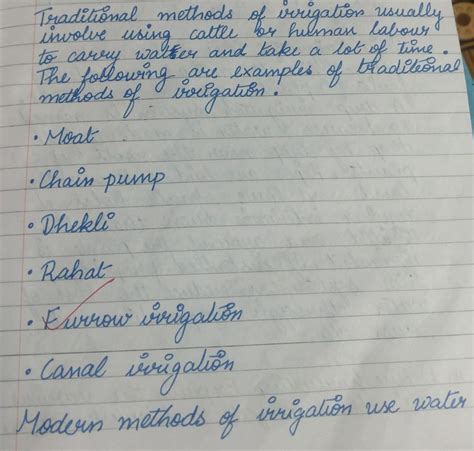 Traditional methods of irrigation usually
involve using cattle or human labour
to carry water and take a lot of time.
The following are examples of traditional
methods of irrigation.
• Moat
• Chain pump
• Dhekli
• Rahat
• Furrow irrigation
• Canal irrigation
Modern methods of irrigation use water